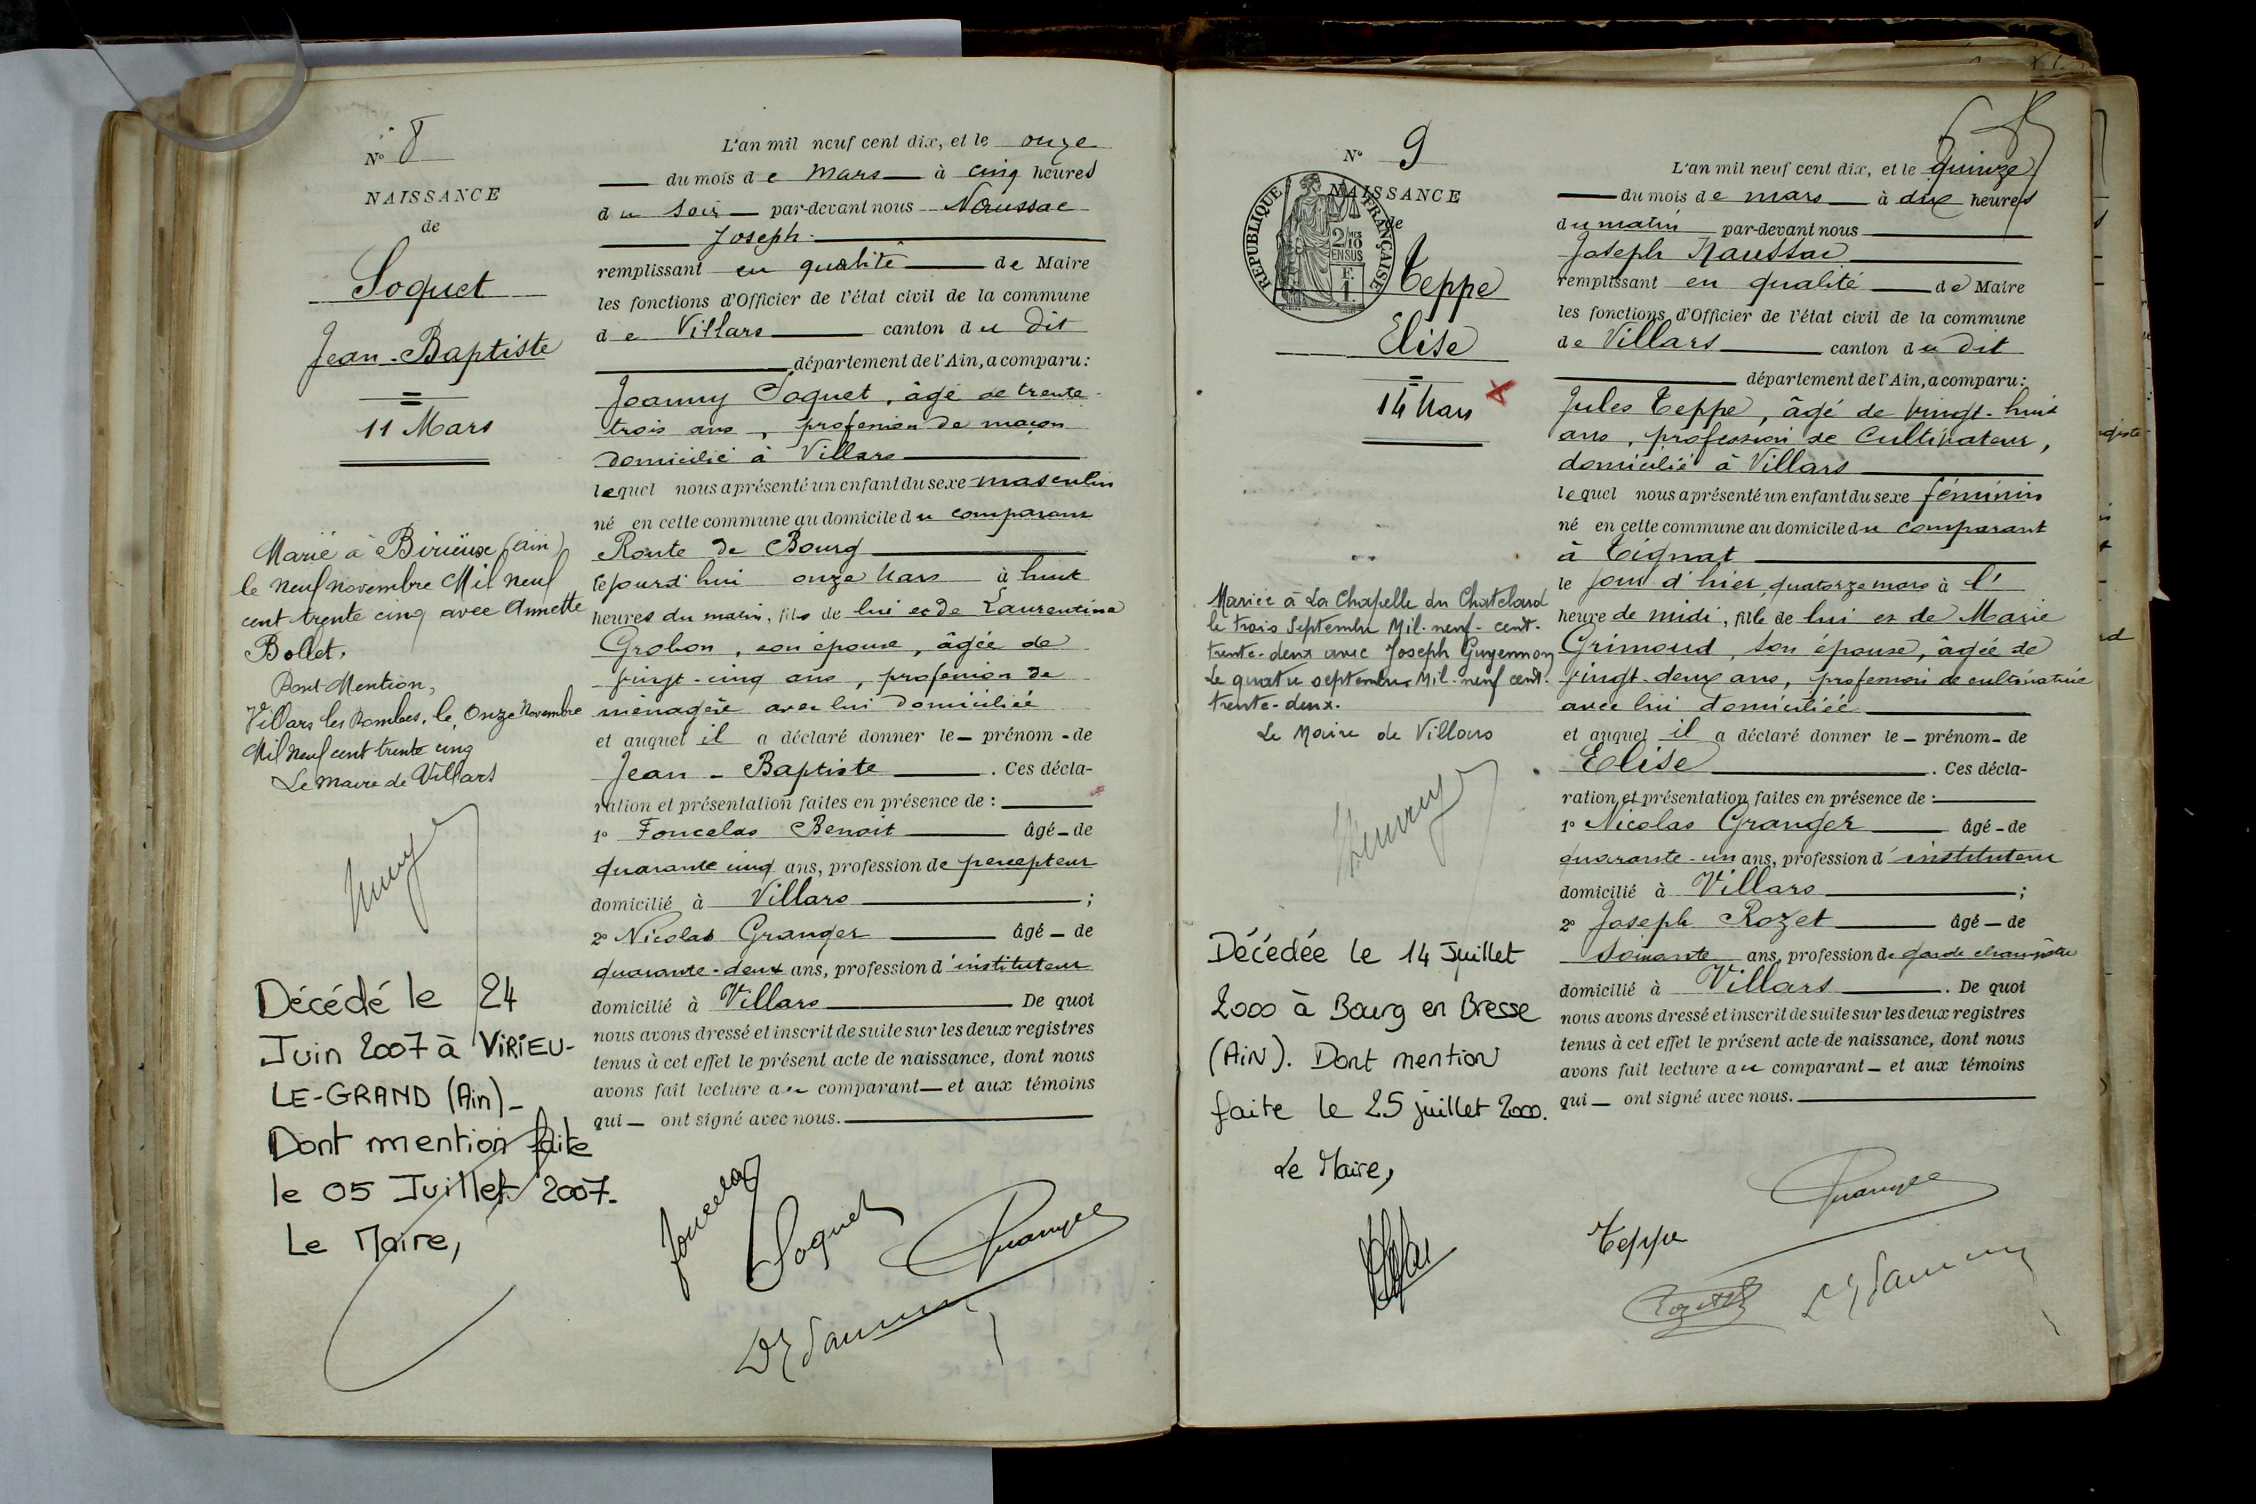 N° 8
NAISSANCE
de
Soquet
Jean-Baptiste
11 Mars
Marié à Birieux (Ain)
le neuf novembre Mil neuf
cent trente cinq avec Annette
Bollet.
Dont Mention,
Villars les Dombes, le Onze Novembre
Mil neuf cent trente cinq
Le Maire de Villars
Décédé le 24
Juin 2007 à VIRIEU-
LE-GRAND (Ain)-
Dont mention faite
le 05 Juillet 2007-
Le Maire,
L'an mil neuf cent dix, et le onze
du mois de Mars à cinq heures
du soir par-devant nous Naussac
Joseph
remplissant en qualité de Maire
les fonctions d'Officier de l'état civil de la commune
de Villars canton du dit
département de l'Ain, a comparu:
Joanny Soquet, âgé de trente-
trois ans, profession de maçon
domicilié à Villars
lequel nous a présenté un enfant du sexe masculin
né en cette commune au domicile du comparant
Route de Bourg
lejourd'hui onze Mars à huit
heures du matin, fils de lui et de Laurentine
Grobon, son épouse, âgée de
vingt-cinq ans, profession de
ménagère avec lui domiciliée
et auquel il a déclaré donner le - prénom - de
Jean-Baptiste. Ces décla-
ration et présentation faites en présence de :
1° Foncelas Benoit âgé - de
quarante cinq ans, profession de percepteur
domicilié à Villars ;
2° Nicolas Granger âgé - de
quarante-deux ans, profession d'instituteur
domicilié à Villars De quoi
nous avons dressé et inscrit de suite sur les deux registres
tenus à cet effet le présent acte de naissance, dont nous
avons fait lecture au comparant - et aux témoins
qui - ont signé avec nous.
Soquet
Granger
N° 9
NAISSANCE
de
RÉPUBLIQUE FRANÇAISE
2/10 MES EN SUS
F.
1.
Teppe
Elise
14 Mars
Mariée à La Chapelle du Chatelard
le trois Septembre Mil-neuf-cent-
trente-deux avec Joseph Guyennon
Le quatre septembre Mil-neuf cent-
trente-deux.
Le Maire de Villars
Décédée le 14 Juillet
2000 à Bourg en Bresse
(AiN). Dont mention
faite le 25 juillet 2000.
Le Maire,
L'an mil neuf cent dix, et le quinze
du mois de mars à dix heures
du matin par-devant nous
Joseph Naussac
remplissant en qualité de Maire
les fonctions d'Officier de l'état civil de la commune
de Villars canton du dit
département de l'Ain, a comparu:
Jules Teppe, âgé de vingt-huit
ans, profession de Cultivateur,
domicilié à Villars
lequel nous a présenté un enfant du sexe féminin
né en cette commune au domicile du comparant
à Tignat
le jour d'hier, quatorze mars à l'
heure de midi, fille de lui et de Marie
Grimoud, son épouse, âgée de
vingt-deux ans, profession de cultivatrice
avec lui domiciliée
et auquel il a déclaré donner le - prénom - de
Elise. Ces décla-
ration et présentation faites en présence de :
1° Nicolas Granger âgé - de
quarante-un ans, profession d'instituteur
domicilié à Villars ;
2° Joseph Rozet âgé - de
soixante ans, profession de garde champêtre
domicilié à Villars. De quoi
nous avons dressé et inscrit de suite sur les deux registres
tenus à cet effet le présent acte de naissance, dont nous
avons fait lecture au comparant - et aux témoins
qui - ont signé avec nous.
Granger
Teppe